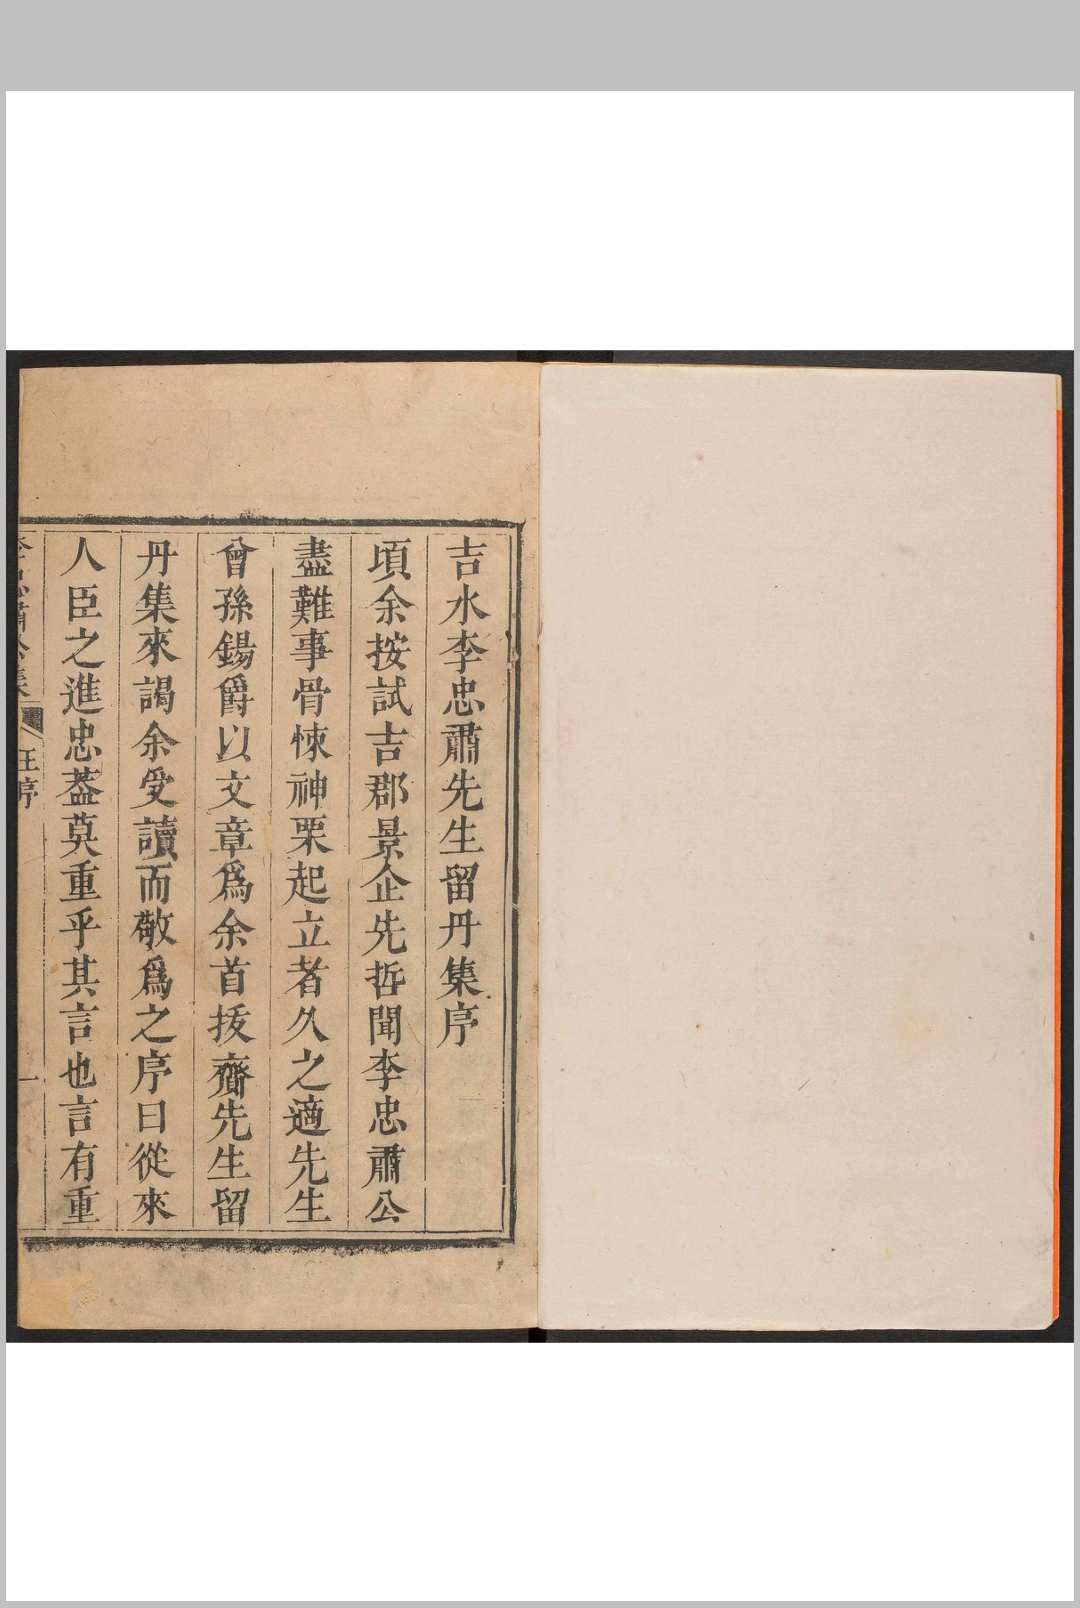 吉水李忠肅先生留丹集序
頃余按試吉郡景企先哲聞李忠肅公
盡難事骨悚神栗起立者久之適先生
曾孫鍚爵以文章爲余首拔齎先生留
丹集來謁余受讀而敬爲之序曰從來
人臣之進忠葢莫重乎其言也言有重
李忠肅公集 汪序 一